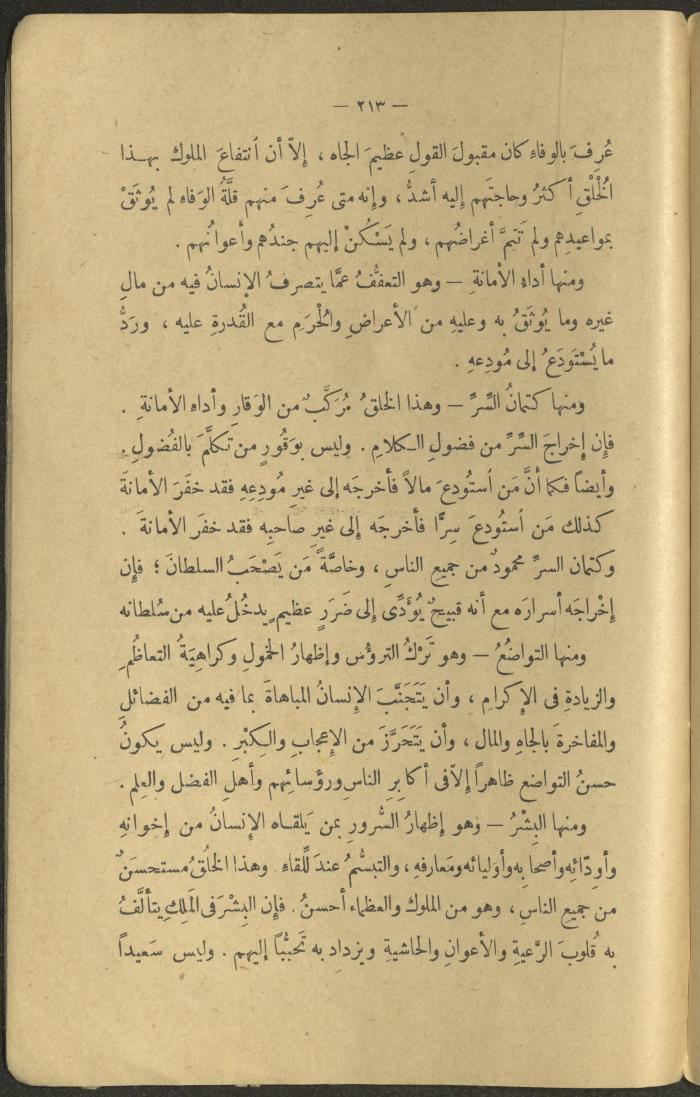 — ٢١٣ —
عُرِفَ بالوفاءِ كان مقبولَ القولِ عظيمَ الجاه ، إِلاّ أن اُنتفاعَ الملوك بهـذا
الُخْلُقِ أكثرُ وحاجتَهم إِليه أشدُّ ، وإِنه متى عُرِفَ منهم قلَّةُ الوَفاءِ لم يُوثَقْ
بمواعيدِهم ولم تَتِمَّ أغراضُهم ، ولم يَسْكُنْ إِليهم جندُهم وأَعوانُهم .
ومنها أداءِ الأمانةِ — وهو التعفُّفُ عمَّا يتصرفُ الإِنسانُ فيه من مالِ
غيره وما يُوثَقُ به وعليهِ من الأعراضِ والُحْرَمِ مع القُدرةِ عليه ، ورَدُّ
ما يُسْتَودَعُ إلى مُودِعهِ .
ومنها كتمانُ السِّرِّ — وهذا الخلقُ مُرَكَّبٌ من الوَقارِ وأداء الأمانةِ .
فإِن إخراجَ السِّرِّ من فضولِ الـكلامِ . وليس بوَقُورٍ من تـكلَّمَ بالفُضولِ .
وأيضاً فـكما أنَّ مَن اُستُودِعَ مالاً فأخرجَه إلى غيرِ مُودِعِهِ فقد خفَرَ الأمانةَ
كذلك مَن اُستُودعَ سِرًّا فأخرجَه إِلى غيرِ صاحبِه فقد خفَر الأمانةَ .
وكتمان السرِّ محمودٌ من جميعِ الناسِ ، وخاصَّةً مَن يَصْحَبُ السلطانَ ؛ فإِن
إِخْراجَه أسرارَه مع أنه قبيحٌ يُؤَدِّى إلى ضَرَرٍ عظيمٍ يدخُلُ عليه من سُلطانه
ومنها التواضُعُ — وهو تَرْكُ التروُّس وإظهارُ الخمولِ وكراهِيَةُ التعاظُمِ
والزيادةِ فى الإِكرامِ ، وأن يَتَجَنَّبَ الإنسانُ المباهاةَ بما فيه من الفضائلِ
والمفاخرةَ بالجاهِ والمال ، وأن يَتَحَرَّزَ من الإعجابِ والـكِبْرِ . وليس يكونُ
حسنُ التواضع ظاهراً إلاّ فى أكابِرِ الناسِ ورؤسائِهم وأهلِ الفضل والعِلم .
ومنها البِشْرُ — وهو إظهارُ السُّرورِ بمن يَلقـاه الإِنسانُ من إِخوانهِ
وأودّائِه وأصحابِه وأوليائه ومَعارِفهِ ، والتبسُّمُ عندَ للّقاءِ وهذا الخلُقُ مستحسَنٌ
من جميعِ الناس ، وهو من الملوك والعظماء أحسنُ . فإِن البِشْرَ فى المَلِكِ يتألَّفُ
به قُلوبَ الرَّعيةِ والأعوانِ والحاشيةِ ويزداد به تَحَبُّباً إليهم . وليس سَعيداً